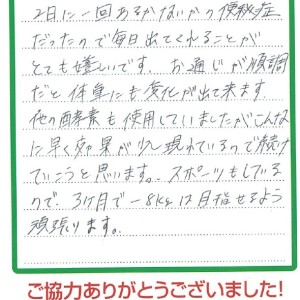 2日に一回あるかないかの便秘症
だったので毎日出てくれることが
とても嬉しいです。お通じが順調
だと体重にも変化が出て来ます。
他の酵素も使用していましたがこんな
に早く効果が少し現れているので続け
ていこうと思います。スポーツもしている
ので、3ヶ月で-8kgは目指せるよう
頑張ります。
ご協力ありがとうございました!